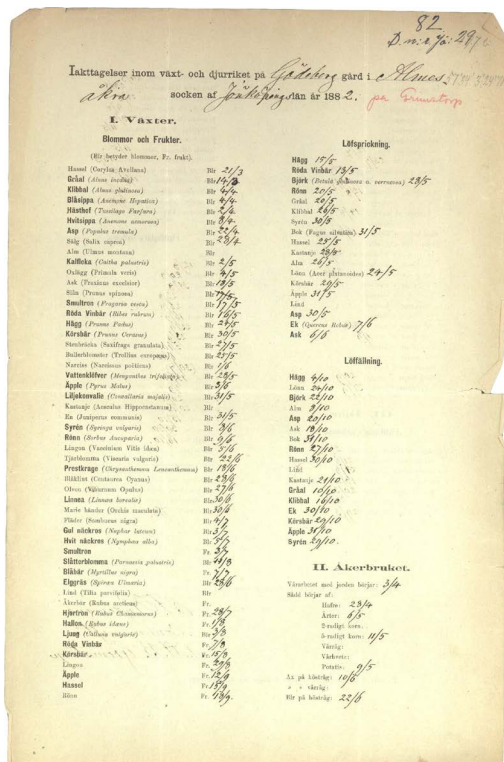 82
Iakttagelser inom växt- och djurriket på Södeberg gård i Almes
åkra socken af Jönköpings län år 1882. på Grimstorp
I. Växter.
Blommor och Frukter.
(Blr betyder blommor, Fr. frukt).
Hassel (Corylus Avellana) Blr 21/3
Gråal (Alnus incana) Blr 14/3
Klibbal (Alnus glutinosa) Blr 4/4
Blåsippa (Anemone Hepatica) Blr 4/4
Hästhof (Tussilago Farfara) Blr 2/4
Hvitsippa (Anemone nemorosa) Blr 8/4
Asp (Populus tremula) Blr 22/4
Sälg (Salix caprea) Blr 23/4
Alm (Ulmus montana) Blr
Kalfleka (Caltha palustris) Blr 2/5
Oxlägg (Primula veris) Blr 4/5
Ask (Fraxinus excelsior) Blr 18/5
Slån (Prunus spinosa) Blr 17/5
Smultron (Fragaria vesca) Blr 17/5
Röda Vinbär (Ribes rubrum) Blr 16/5
Hägg (Prunus Padus) Blr 24/5
Körsbär (Prunus Cerasus) Blr 30/5
Stenbräcka (Saxifraga granulata) Blr 27/5
Bullerblomster (Trollius europæus) Blr 25/5
Narciss (Narcissus poëticus) Blr 1/6
Vattenklöfver (Menyanthes trifoliata) Blr 28/5
Äpple (Pyrus Malus) Blr 3/6
Liljekonvalie (Convallaria majalis) Blr 31/5
Kastanje (Aesculus Hippocastanum) Blr
En (Juniperus communis) Blr 31/5
Syrén (Syringa vulgaris) Blr 8/6
Rönn (Sorbus Aucuparia) Blr 9/6
Lingon (Vaccinium Vitis idæa) Blr 5/6
Tjärblomma (Viscaria vulgaris) Blr 22/6
Prestkrage (Chrysanthemum Leucanthemum) Blr 18/6
Blåklint (Centaurea Cyanus) Blr 23/6
Olvon (Viburnum Opulus) Blr 27/6
Linnea (Linnæa borealis) Blr 30/6
Marie händer (Orchis maculata) Blr 30/6
Fläder (Sambucus nigra) Blr 4/7
Gul näckros (Nuphar luteum) Blr 3/7
Hvit näckros (Nymphæa alba) Blr 5/7
Smultron Fr. 3/7
Slåtterblomma (Parnassia palustris) Blr
Blåbär (Myrtillus nigra) Fr. 7/7
Elggräs (Spiræa Ulmaria) Blr 28/6
Lind (Tilia parvifolia) Blr
Åkerbär (Rubus arcticus) Fr.
Hjortron (Rubus Chamæmorus) Fr. 28/7
Hallon (Rubus idæus) Fr. 1/8
Ljung (Calluna vulgaris) Blr 2/8
Röda Vinbär Fr.
Körsbär Fr. 15/8
Lingon Fr. 29/8
Äpple Fr. 12/9
Hassel Fr. 15/9
Rönn Fr. 13/9
Löfsprickning.
Hägg 15/5
Röda Vinbär 13/5
Björk (Betula odorata o. verrucosa) 23/5
Rönn 20/5
Gråal 20/5
Klibbal 26/5
Syrén 30/5
Bok (Fagus silvatica) 31/5
Hassel 25/5
Kastanje 28/5
Alm 26/5
Lönn (Acer platanoides) 24/5
Körsbär 29/5
Äpple 31/5
Lind
Asp 30/5
Ek (Quercus Robur) 7/6
Ask 6/6
Löffällning.
Hägg 4/10
Lönn 24/10
Björk 22/10
Alm 3/10
Asp 20/10
Ask 12/10
Bok 31/10
Rönn 27/10
Hassel 30/10
Lind
Kastanje 21/10
Gråal 10/10
Klibbal 16/10
Ek 30/10
Körsbär 29/10
Äpple 31/10
Syrén 29/10
II. Åkerbruket.
Vårarbetet med jorden börjar: 3/4
Sådd börjar af:
Hafre: 23/4
Ärter: 6/5
2-radigt korn:
6-radigt korn: 11/5
Vårråg:
Vårhvete:
Potatis: 9/5
Ax på höstråg: 10/6
» » vårråg:
Blr på höstråg: 22/6